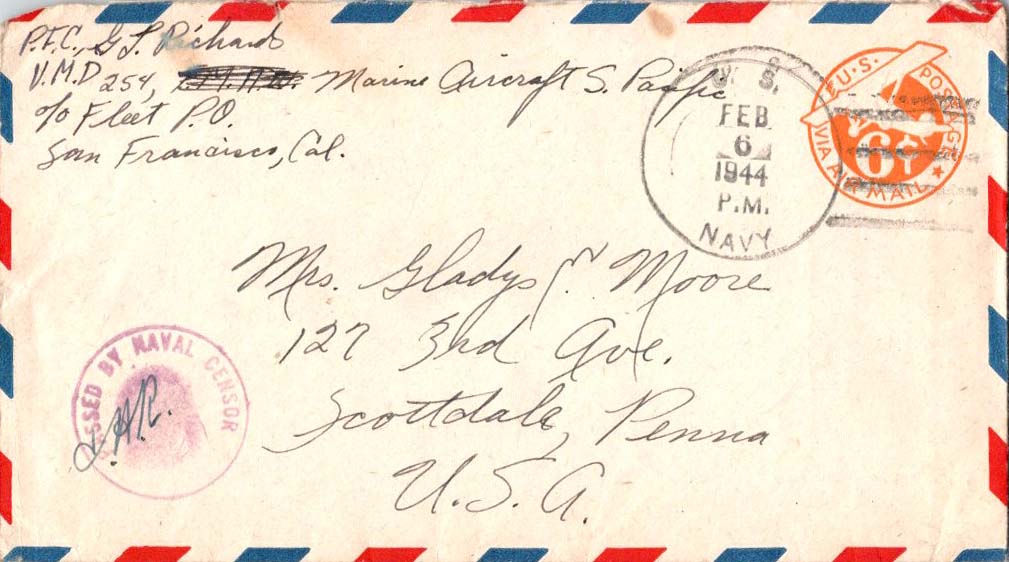 P.F.C., G L Richards
V.M.D 254, Marine Aircraft S. Pacific
c/o Fleet P.O.
San Francisco, Cal.
U. S.
FEB
6
1944
P.M.
NAVY
U.S. POSTAGE
6¢
VIA AIR MAIL
Mrs. Gladys Moore
127 3rd Ave.
Scottdale, Penna
U.S.A.
PASSED BY NAVAL CENSOR